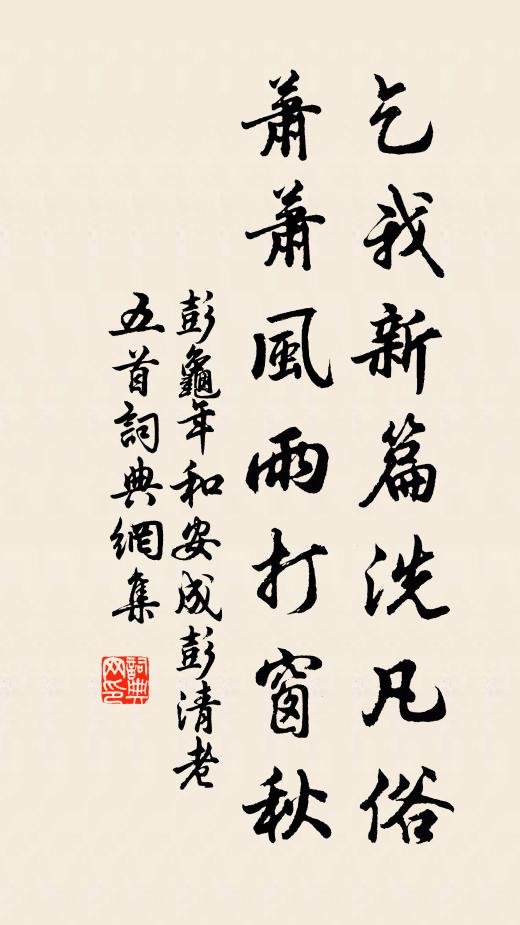 乞我新篇洗凡俗
蕭蕭風雨打窗秋
彭龜年和安成彭清老
五首詞典網集
詞典网印